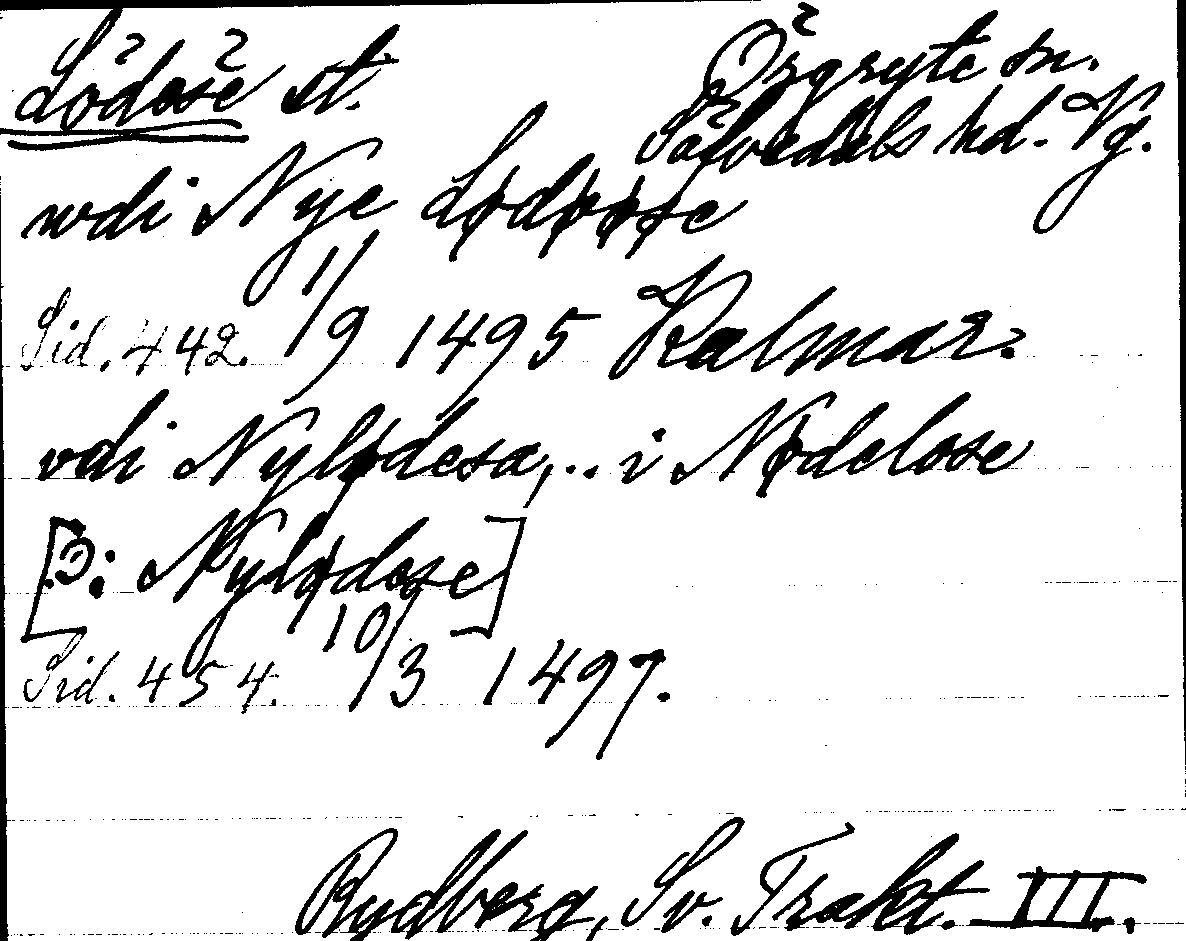 Lödöse st.
Örgryte sn.
Sävedals hd. Vg.
wdi Nye Lødøøse
Sid. 442. 1/9 1495 Kalmar.
vdi Nylødesa,.. i Nødelose
[ɔ: Nylødese]
Sid. 454. 10/3 1497.
Rydberg, Sv. Trakt. III.